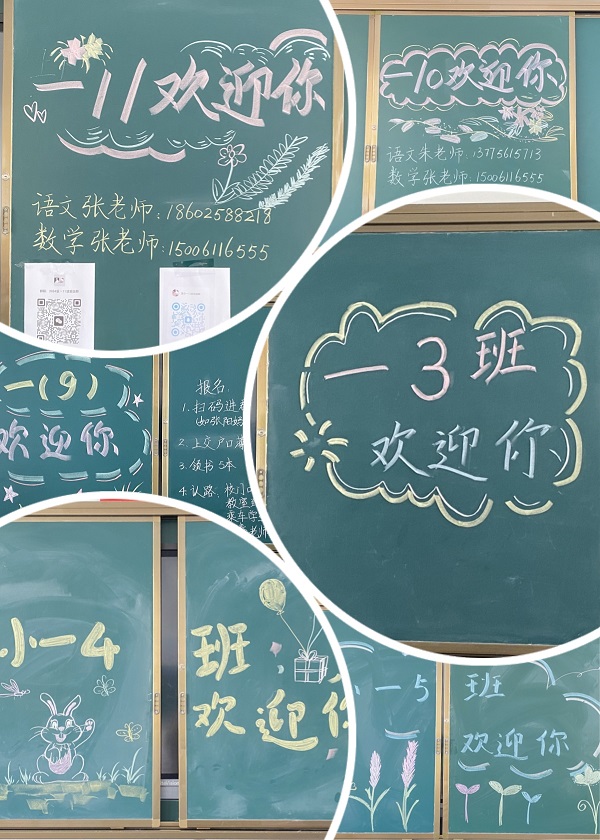 一11欢迎你
语文张老师:18602588218
数学张老师:15006116555
一10欢迎你
语文朱老师:13775615713
数学张老师:15006116555
一(9)
欢迎你
报名:
1.扫码进
2.上交户口簿
3.领书5本
4.认路:校门
教室
乘车
老师
一3班
欢迎你
小一4班
欢迎
小一5班
欢迎你